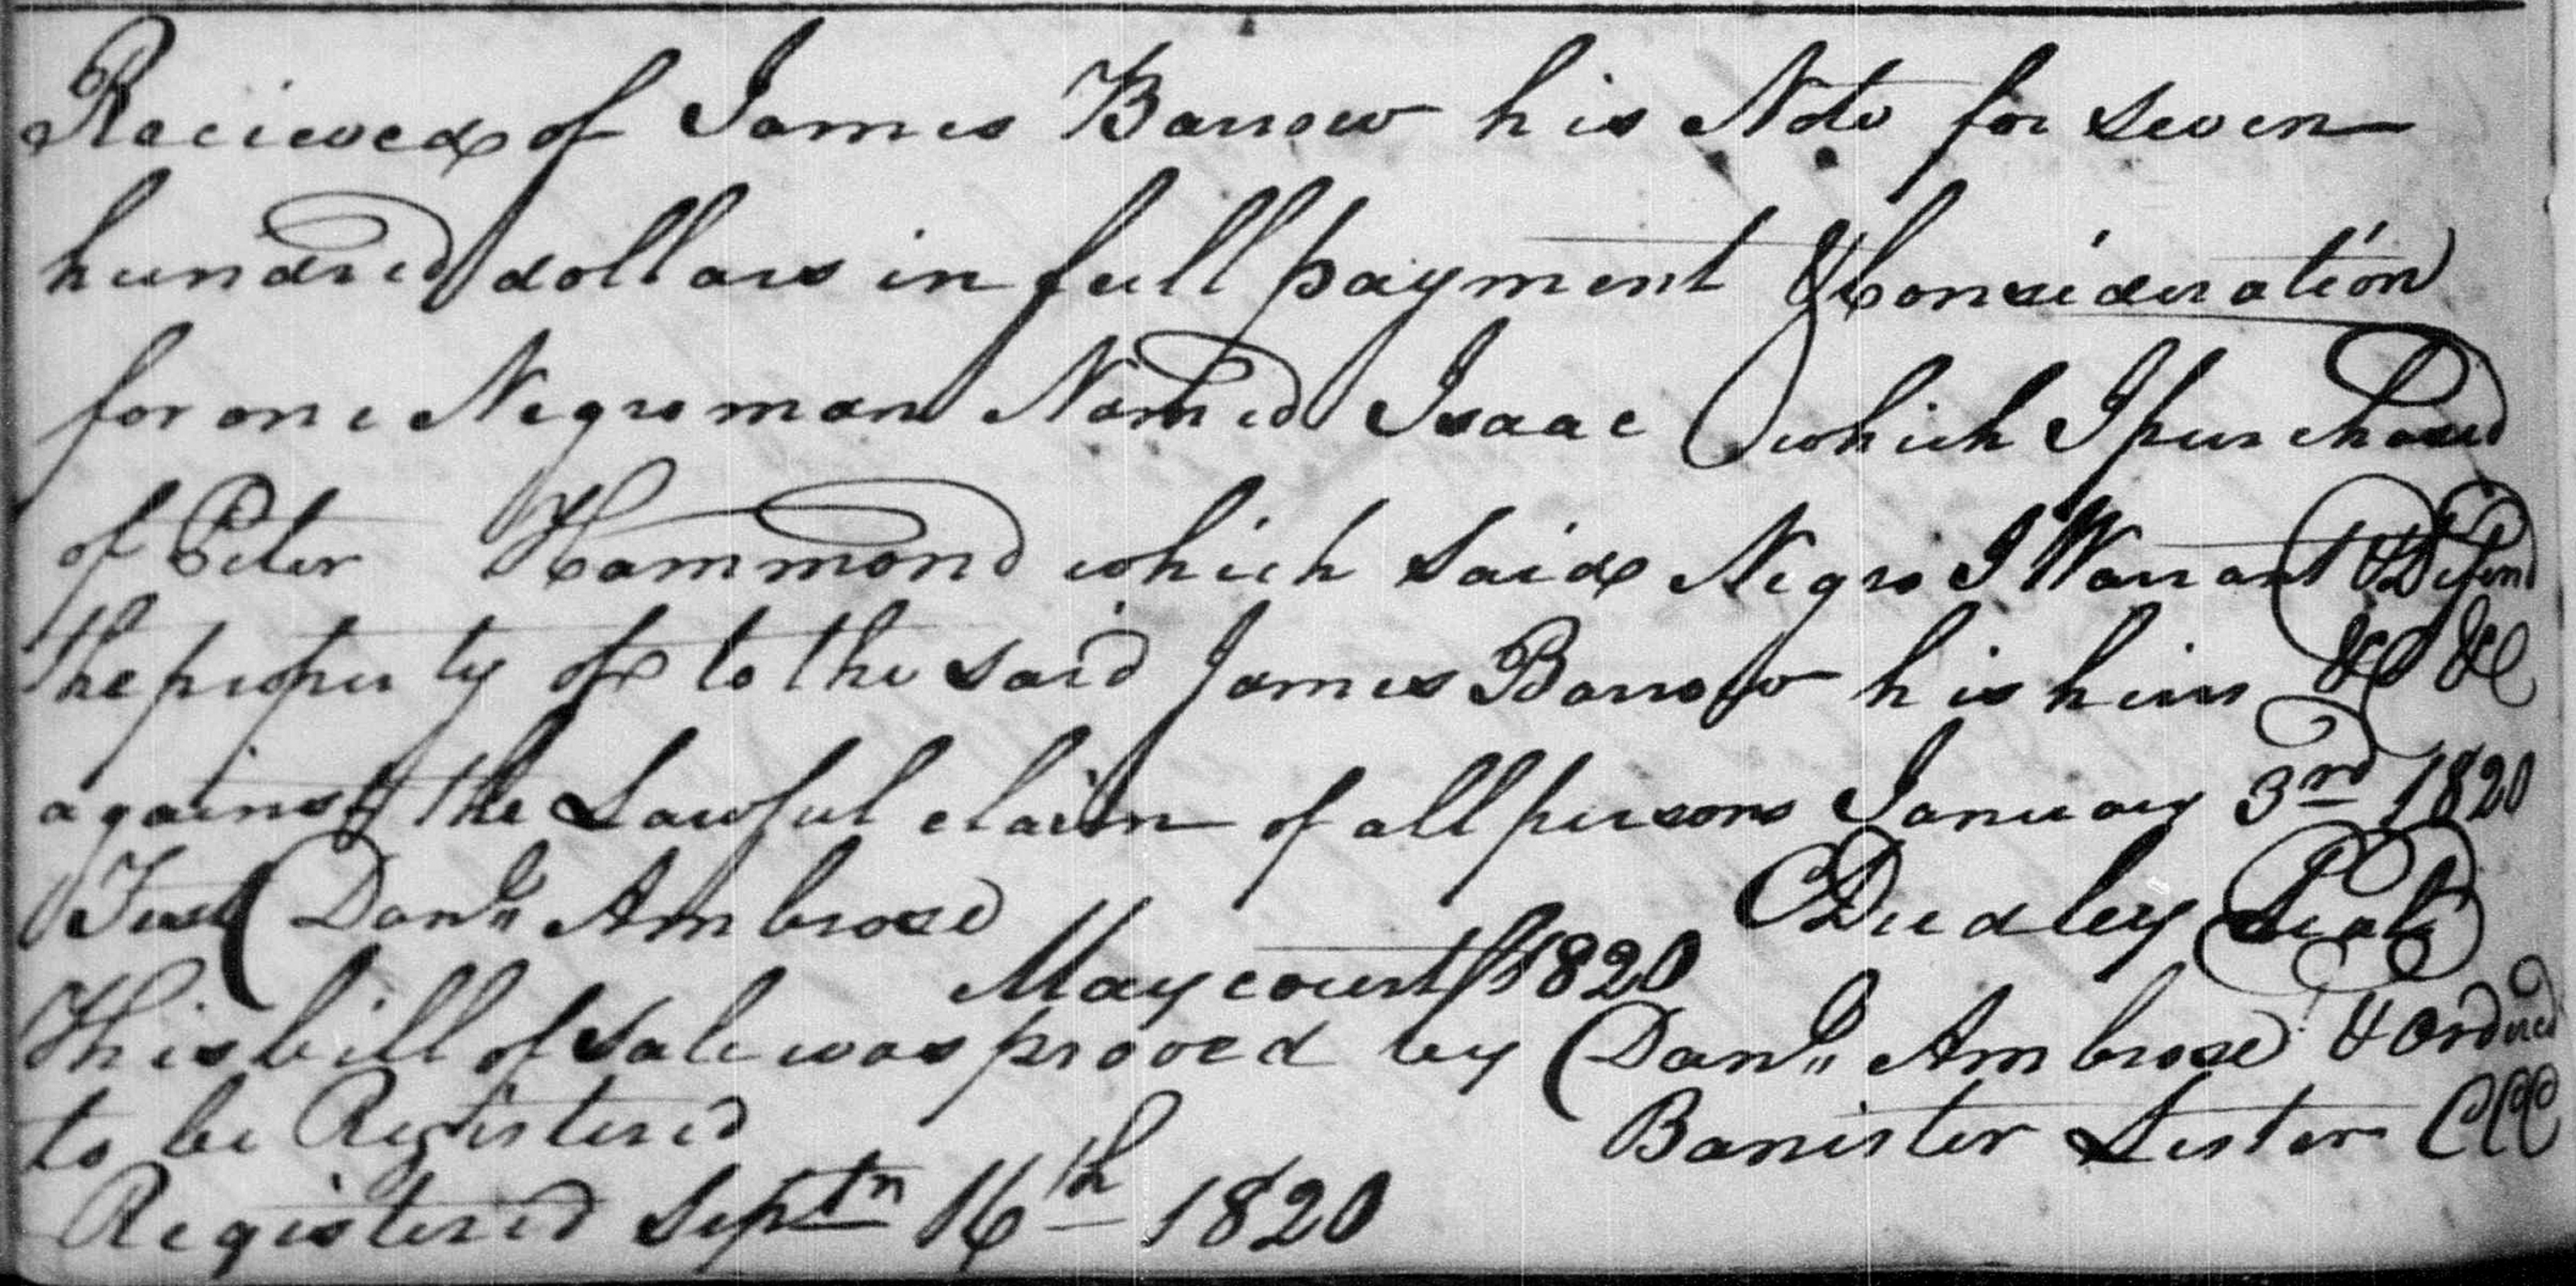 Recieved of James Barrow his Note for seven
hundred dollars in full payment & Consideration
for one Negro man Named Isaac which I purchased
of Peter Hammond which said Negro I Warrant & Defend
the property of to the said James Barrow his heirs &c &c
against the Lawful claim of all persons January 3rd 1820
Test Danll Ambrose
Dudley Seal
May court 1820
This bill of Sale was prooved by Danll Ambrose & Ordered
to be Registered
Banister Lester CCC
Registered Septr 16th 1820